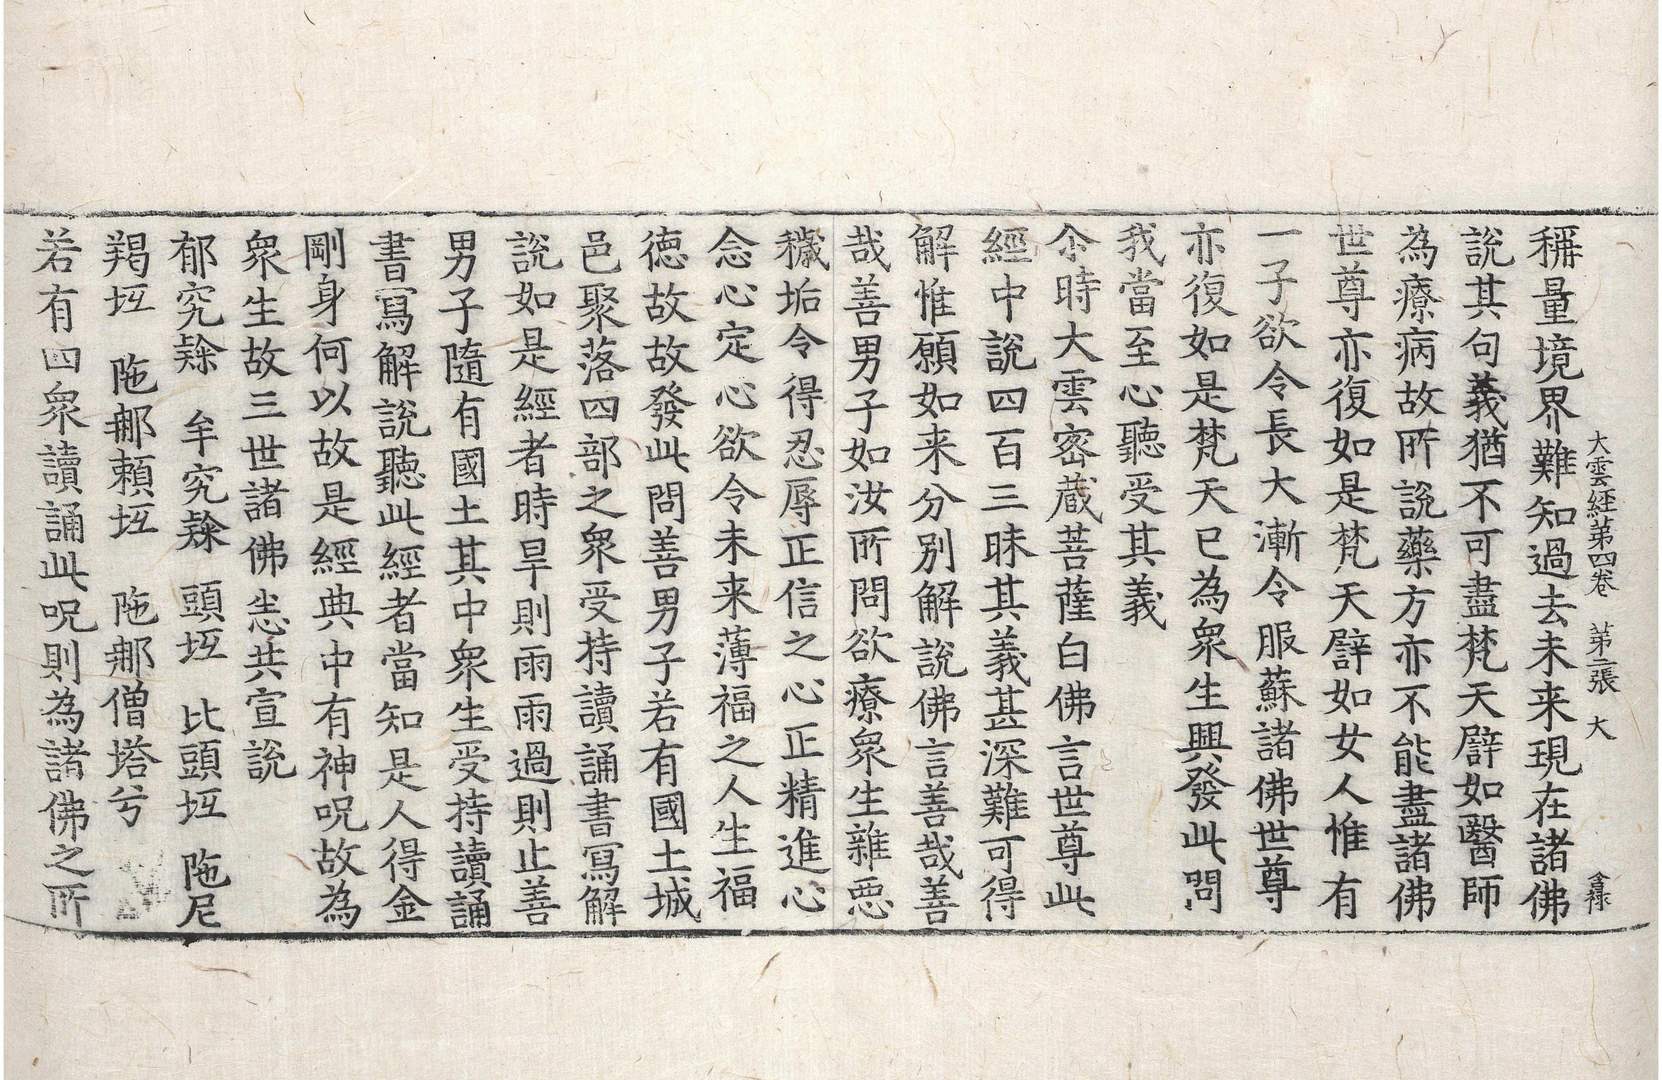 大雲経苐四卷 苐二張 大
稱量境界難知過去未来現在諸佛
說其句義猶不可盡梵天譬如醫師
為療病故所說藥方亦不能盡諸佛
世尊亦復如是梵天譬如女人惟有
一子欲令長大漸令服蘇諸佛世尊
亦復如是梵天已為衆生興發此問
我當至心聽受其義
尒時大雲密蔵菩薩白佛言世尊此
經中說四百三昧其義甚深難可得
解惟願如来分別解說佛言善哉善
哉善男子如汝所問欲療衆生雜惡
穢垢令得忍辱正信之心正精進心
念心定心欲令未来薄福之人生福
德故故發此問善男子若有國土城
邑聚落四部之衆受持讀誦書寫解
說如是經者時旱則雨雨過則止善
男子隨有國土其中衆生受持讀誦
書寫解說聽此經者當知是人得金
剛身何以故是經典中有神呪故為
衆生故三世諸佛悉共宣說
郁究隸 牟究隸 頭坘 比頭坘 陁尼
羯坘 陁那賴坘 陁那僧塔兮
若有四衆讀誦此呪則為諸佛之所